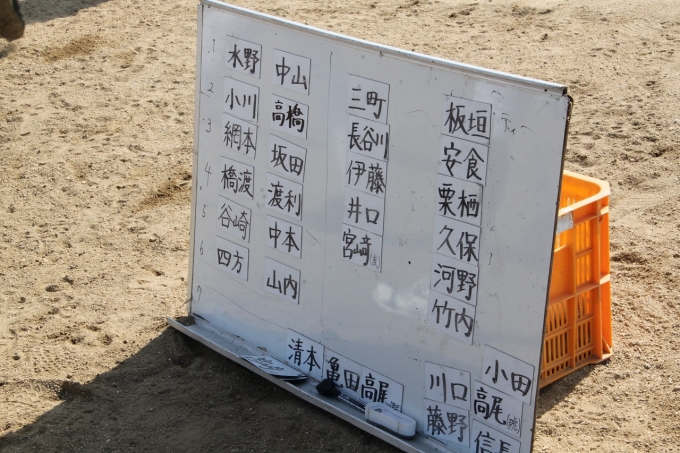 1 水野 中山
2 小川 高橋
3 網本 坂田
4 橋渡 渡利
5 谷崎 中本
6 四方 山内
7
三町
長谷川
伊藤
井口
宮崎
板垣
安食
栗栖
久保
河野
竹内
清本 亀田 高尾
川口 小田
藤野 高尾
信長